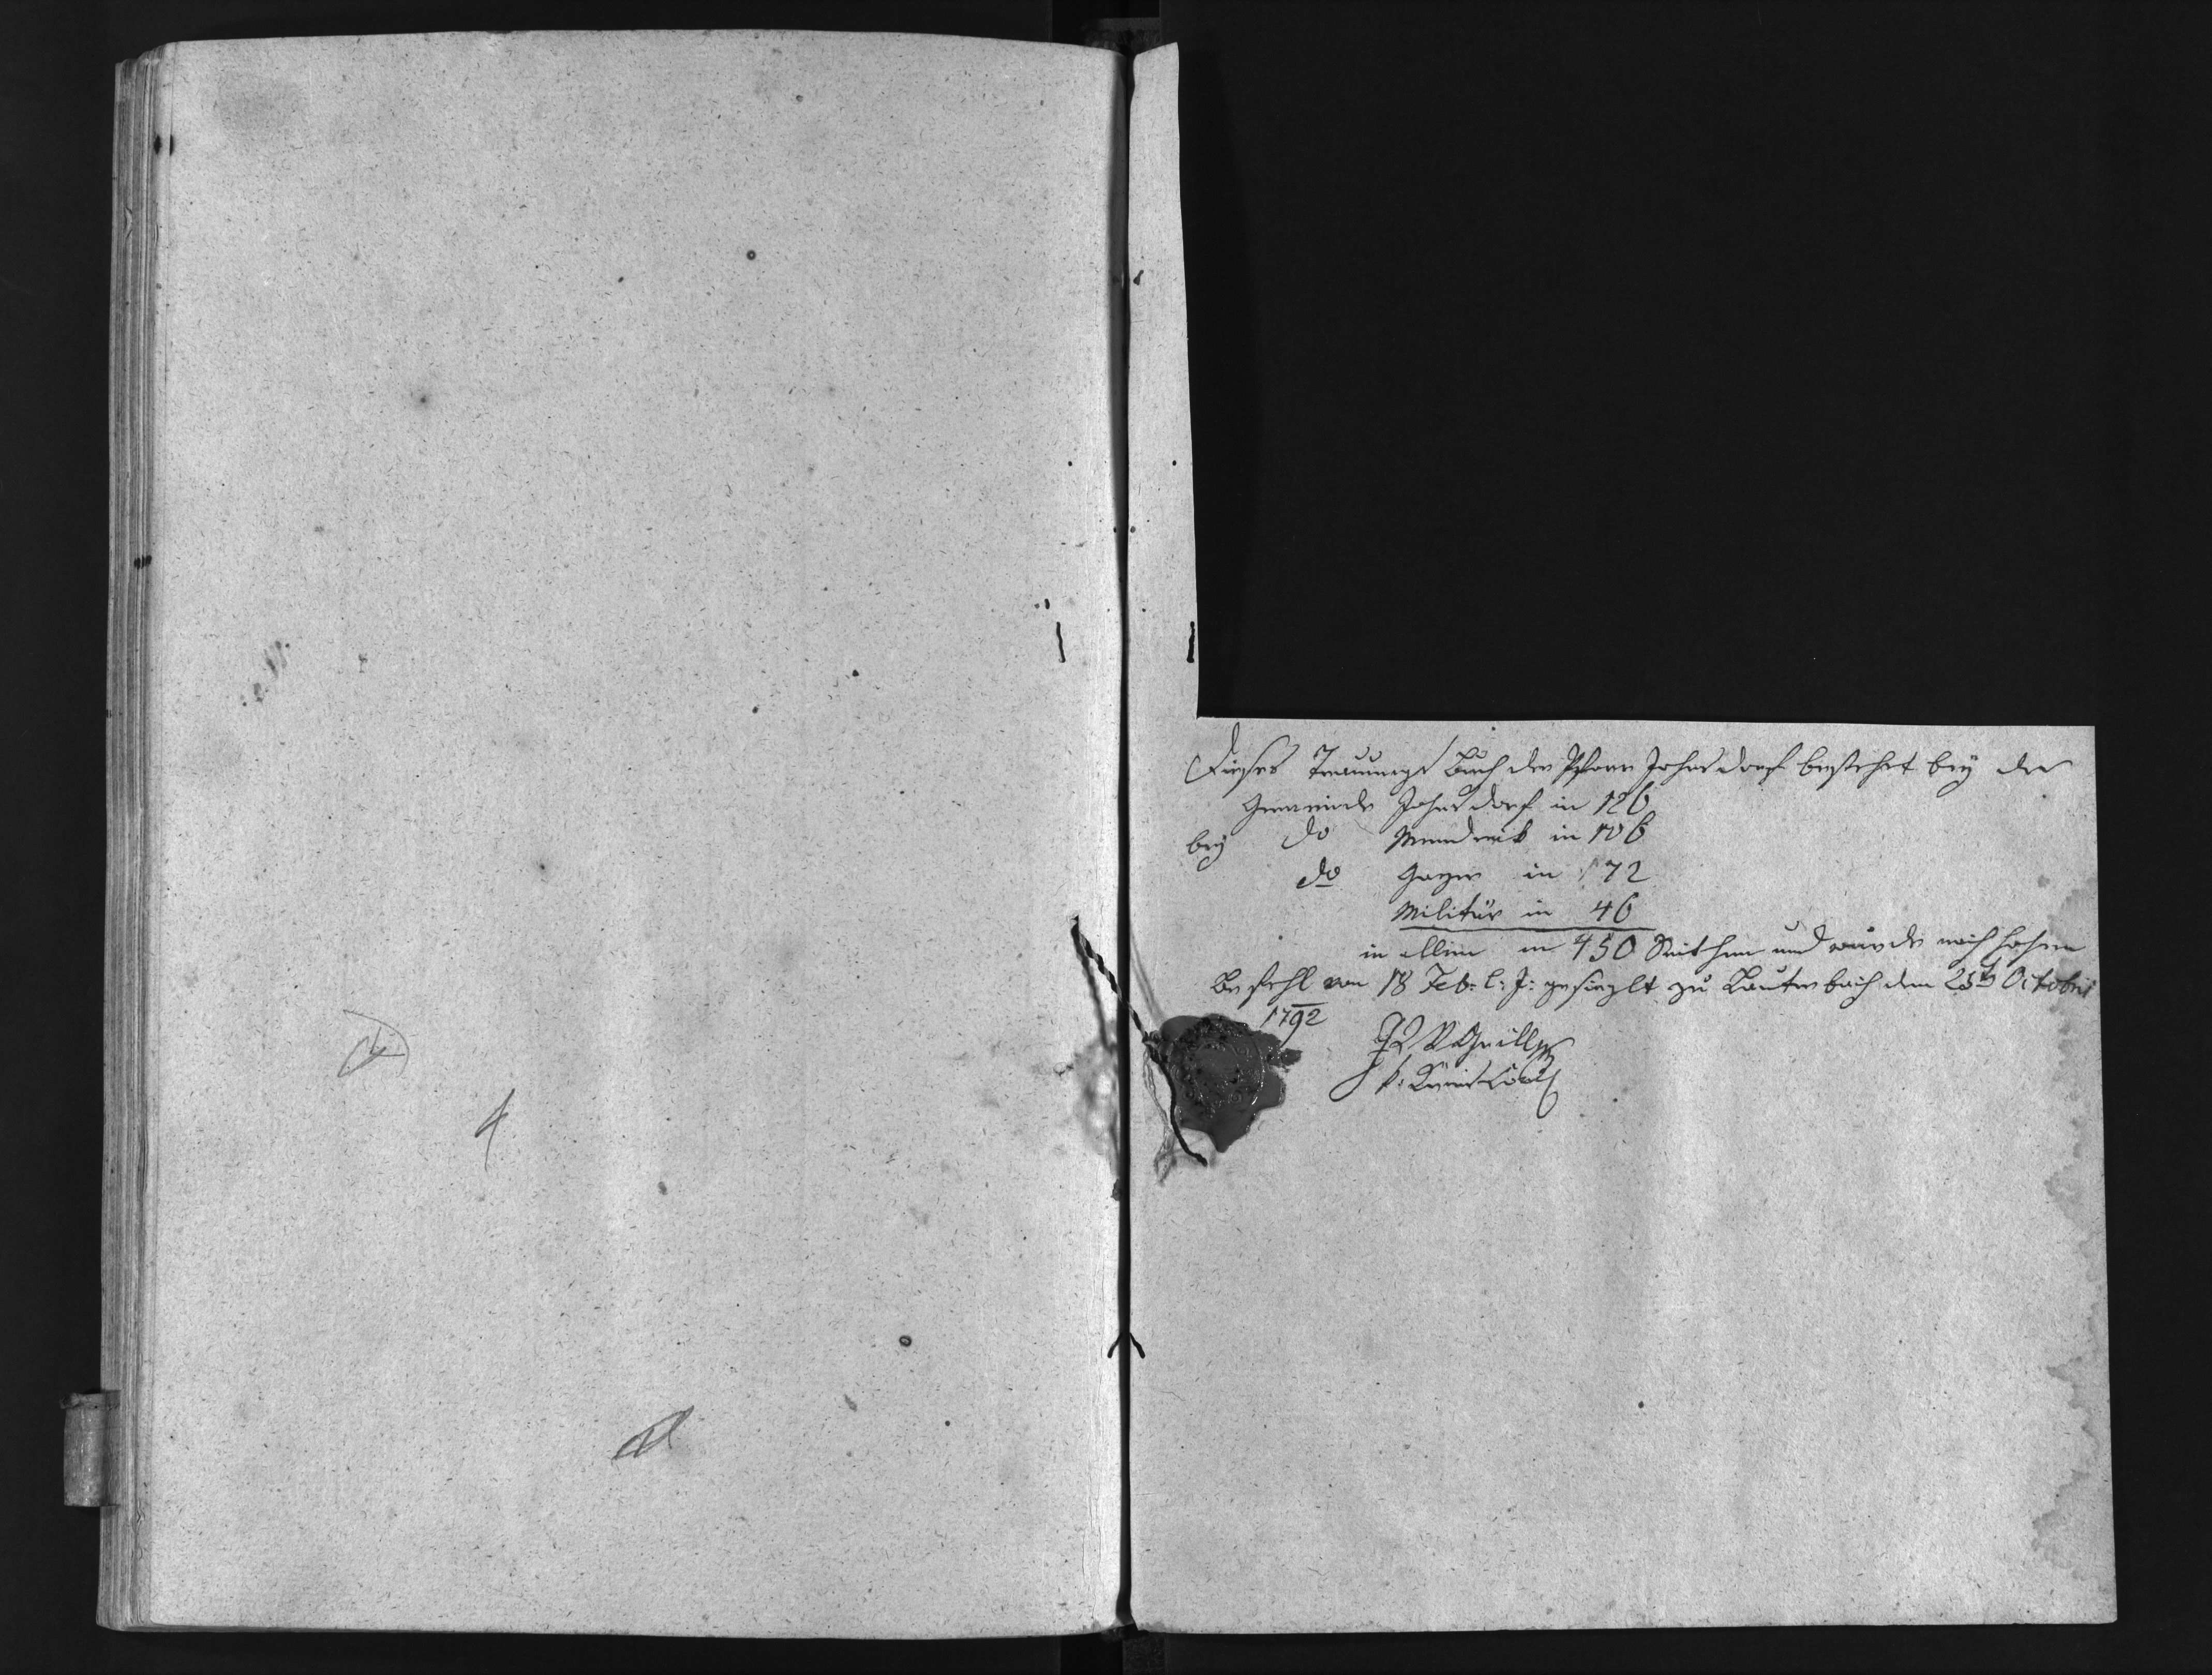 Dieses Trauungs Buch der Pfarr Johnsdorf bestehet bey der
Gemeinde Johnsdorf in 126
bey do Mendrick in 106
do Gayer in 172
Militär in 46
in allem in 450 Seithen und wurde nach hohem
Befehl vom 18 Feb: l: J: gesieglt zu Lauterbach den 25t Octobris
1792